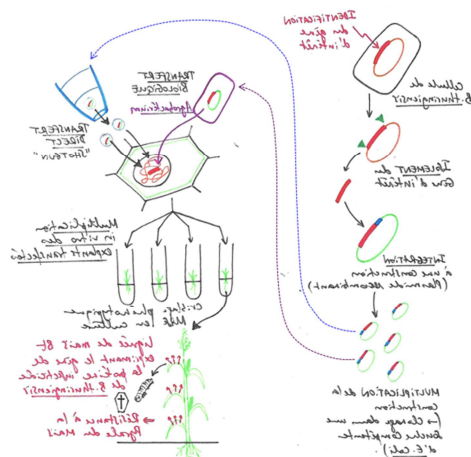 IDENTIFICATION
du gène
d'intérêt
Cellule de
B. thuringiensis
ISOLEMENT du
Gène d'intérêt
INTEGRATION
à une construction
(Plasmide recombinant)
MULTIPLICATION de la
Construction
(→ Clonage dans une
souche compétente
d'E. Coli)
TRANSFERT
BIOLOGIQUE
Agrobactérium
TRANSFERT
DIRECT
"SHOTGUN"
Multiplication
in vitro des
explants transfectés
phénotypique
en culture
Lignée de maïs Bt
exprimant le gène de
la protéine insecticide
de B. thuringiensis
⇒ Résistance à la
Pyrale du Maïs